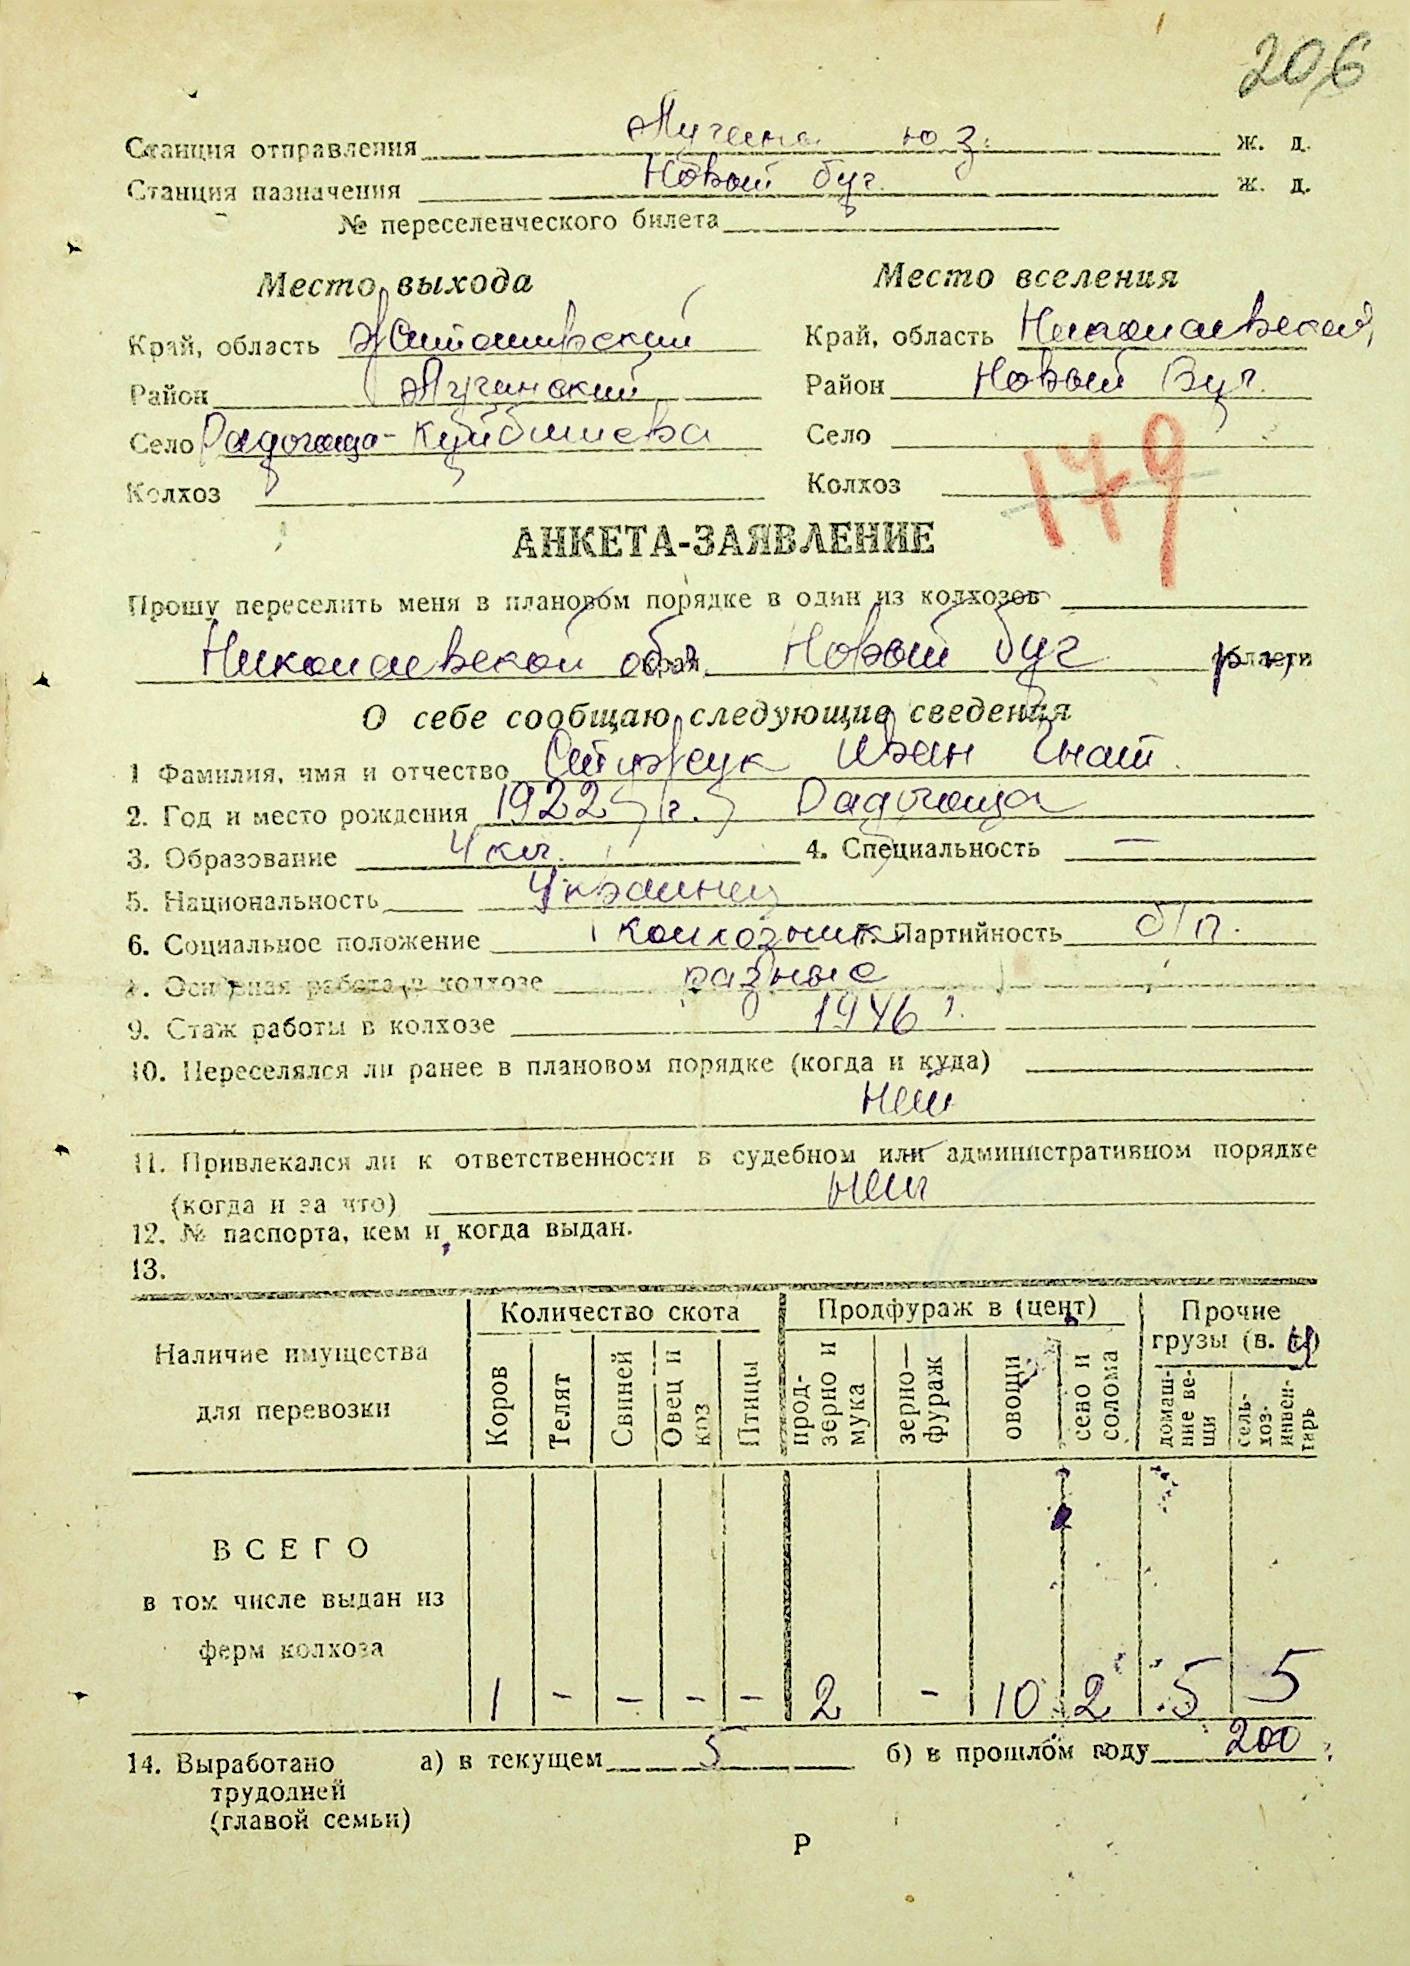 206
Станция отправления Лугины ю з. ж. д.
Станция назначения Новый буг. ж. д.
№ переселенческого билета
Место выхода
Место вселения
Край, область Житомирский
Край, область Николаевской
Район Лугинский
Район Новый Буг.
Село Радогоща-Куйбышева
Село
Колхоз
Колхоз
179
АНКЕТА-ЗАЯВЛЕНИЕ
Прошу переселить меня в плановом порядке в один из колхозов
Николаевской обл. Новый буг
О себе сообщаю следующие сведения
1 Фамилия, имя и отчество Стужук Иван Гнат.
2. Год и место рождения 1922 г. Радогоща
3. Образование 4 кл. 4. Специальность —
5. Национальность Украинец
6. Социальное положение колхозник 7. Партийность б/п.
8. Основная работа в колхозе разные
9. Стаж работы в колхозе 1946 г.
10. Переселялся ли ранее в плановом порядке (когда и куда)
нет
11. Привлекался ли к ответственности в судебном или административном порядке
(когда и за что) нет
12. № паспорта, кем и когда выдан.
13.
Наличие имущества для перевозки
Количество скота
Продфураж в (цент)
Прочие грузы (в. ц)
Коров
Телят
Свиней
Овец и коз
Птицы
прод-зерно и мука
зерно—фураж
овощи
сено и солома
домаш-ние ве-щи
сель-хоз-инвен-тарь
ВСЕГО
в том числе выдан из
ферм колхоза
1 - - - - 2 - 10 2 5 5
14. Выработано а) в текущем 5 б) в прошлом году 200
трудодней
(главой семьи)
Р